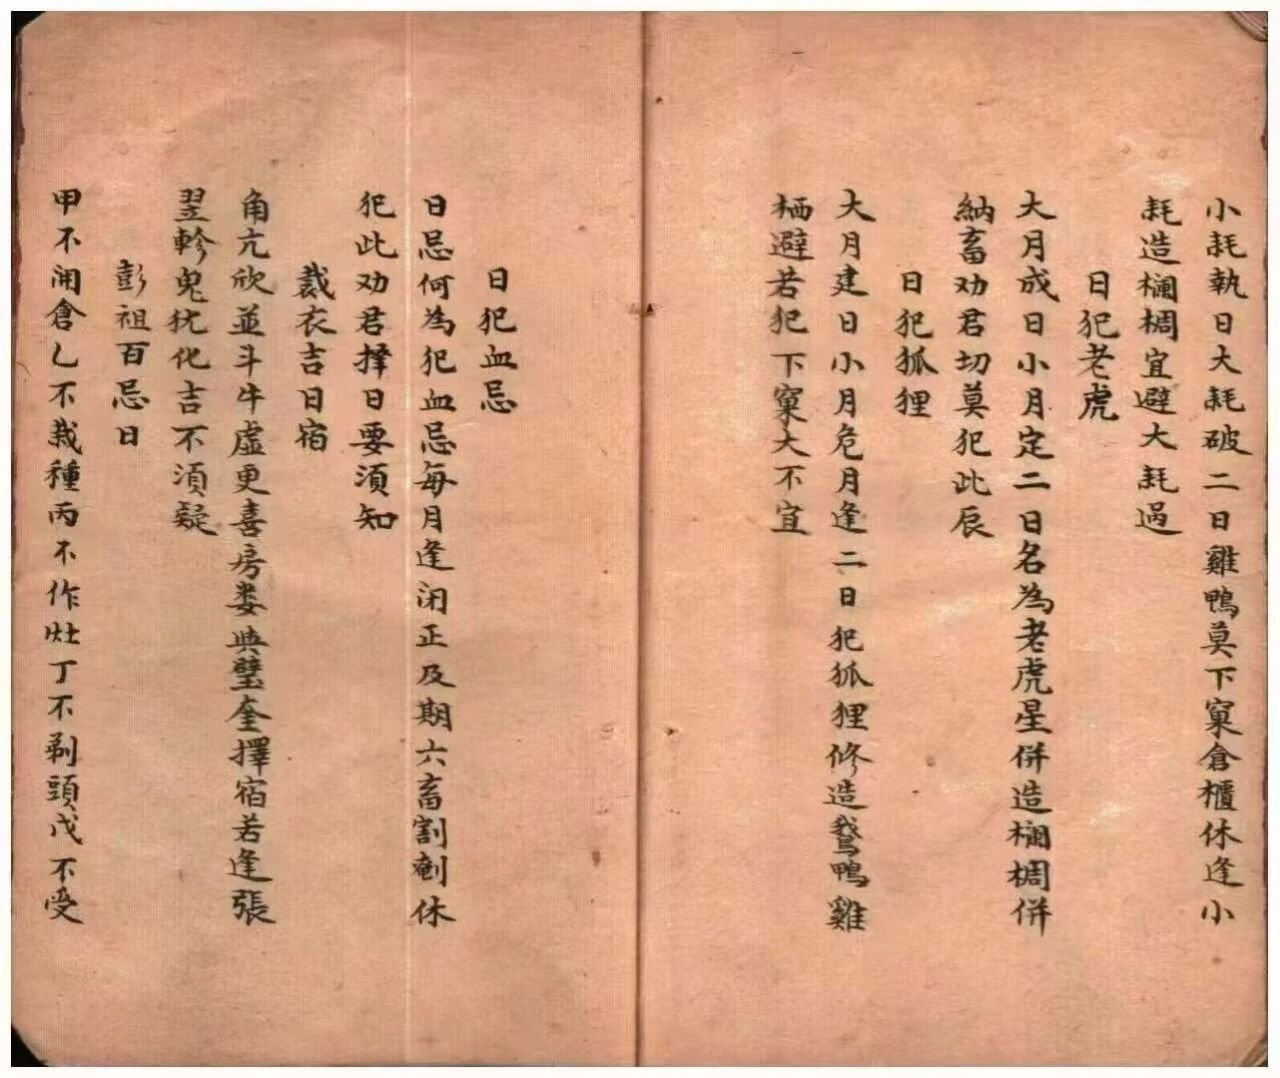 小耗執日大耗破二日雞鴨莫下窠倉櫃休逢小
耗造欄椆宜避大耗過
日犯老虎
大月成日小月定二日名為老虎星併造欄椆併
納畜劝君切莫犯此辰
日犯狐狸
大月建日小月危月逢二日犯狐狸修造鵞鴨雞
栖避若犯下窠大不宜
日犯血忌
日忌何為犯血忌每月逢闭正及期六畜割劁休
犯此劝君择日要須知
裁衣吉日宿
角亢欣並斗牛虛更喜房娄與壁奎擇宿若逢張
翌軫鬼犹化吉不須疑
彭祖百忌日
甲不開倉乙不栽種丙不作灶丁不剃頭戊不受